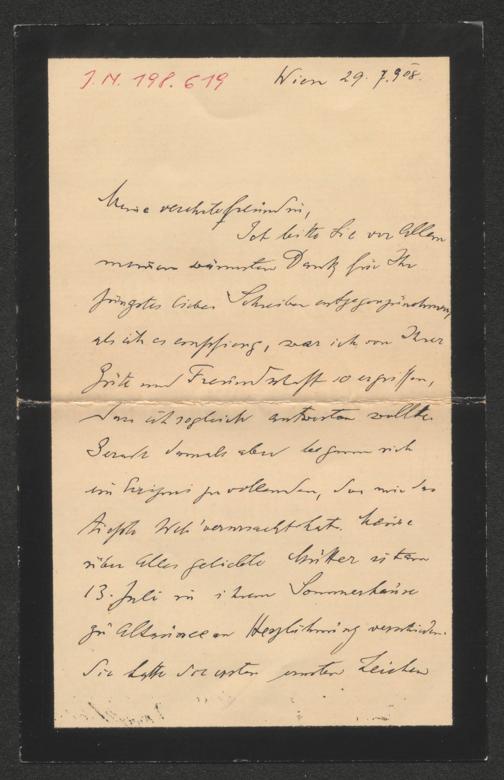 J.N. 198.619
Wien 29. 7. 908.
Meine verehrte Freundin,
Ich bitte Sie vor Allem
meinen wärmsten Dank für Ihr
jüngstes liebes Schreiben entgegenzunehmen,
als ich es empfieng, war ich von Ihrer
Güte und Freundschaft so ergriffen,
dass ich sogleich antworten wollte.
Gerade damals aber begann sich
ein Ereignis zu vollenden, das mir das
tiefste Weh verursacht hat. Meine
über Alles geliebte Mutter ist am
13. Juli in ihrem Sommerhause
zu Altaussee an Herzlähmung verschieden.
Sie hatte die ersten ernsten Zeichen